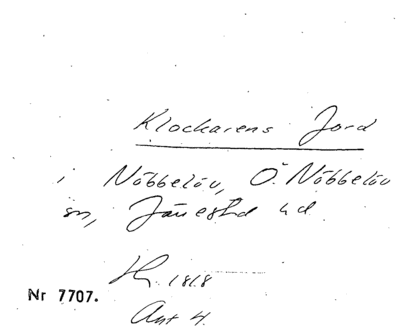 Klockarens Jord
i Nöbbelöv, Ö. Nöbbelöv
sn, Järrestad hd
1818
Nr 7707.
Ant 4.